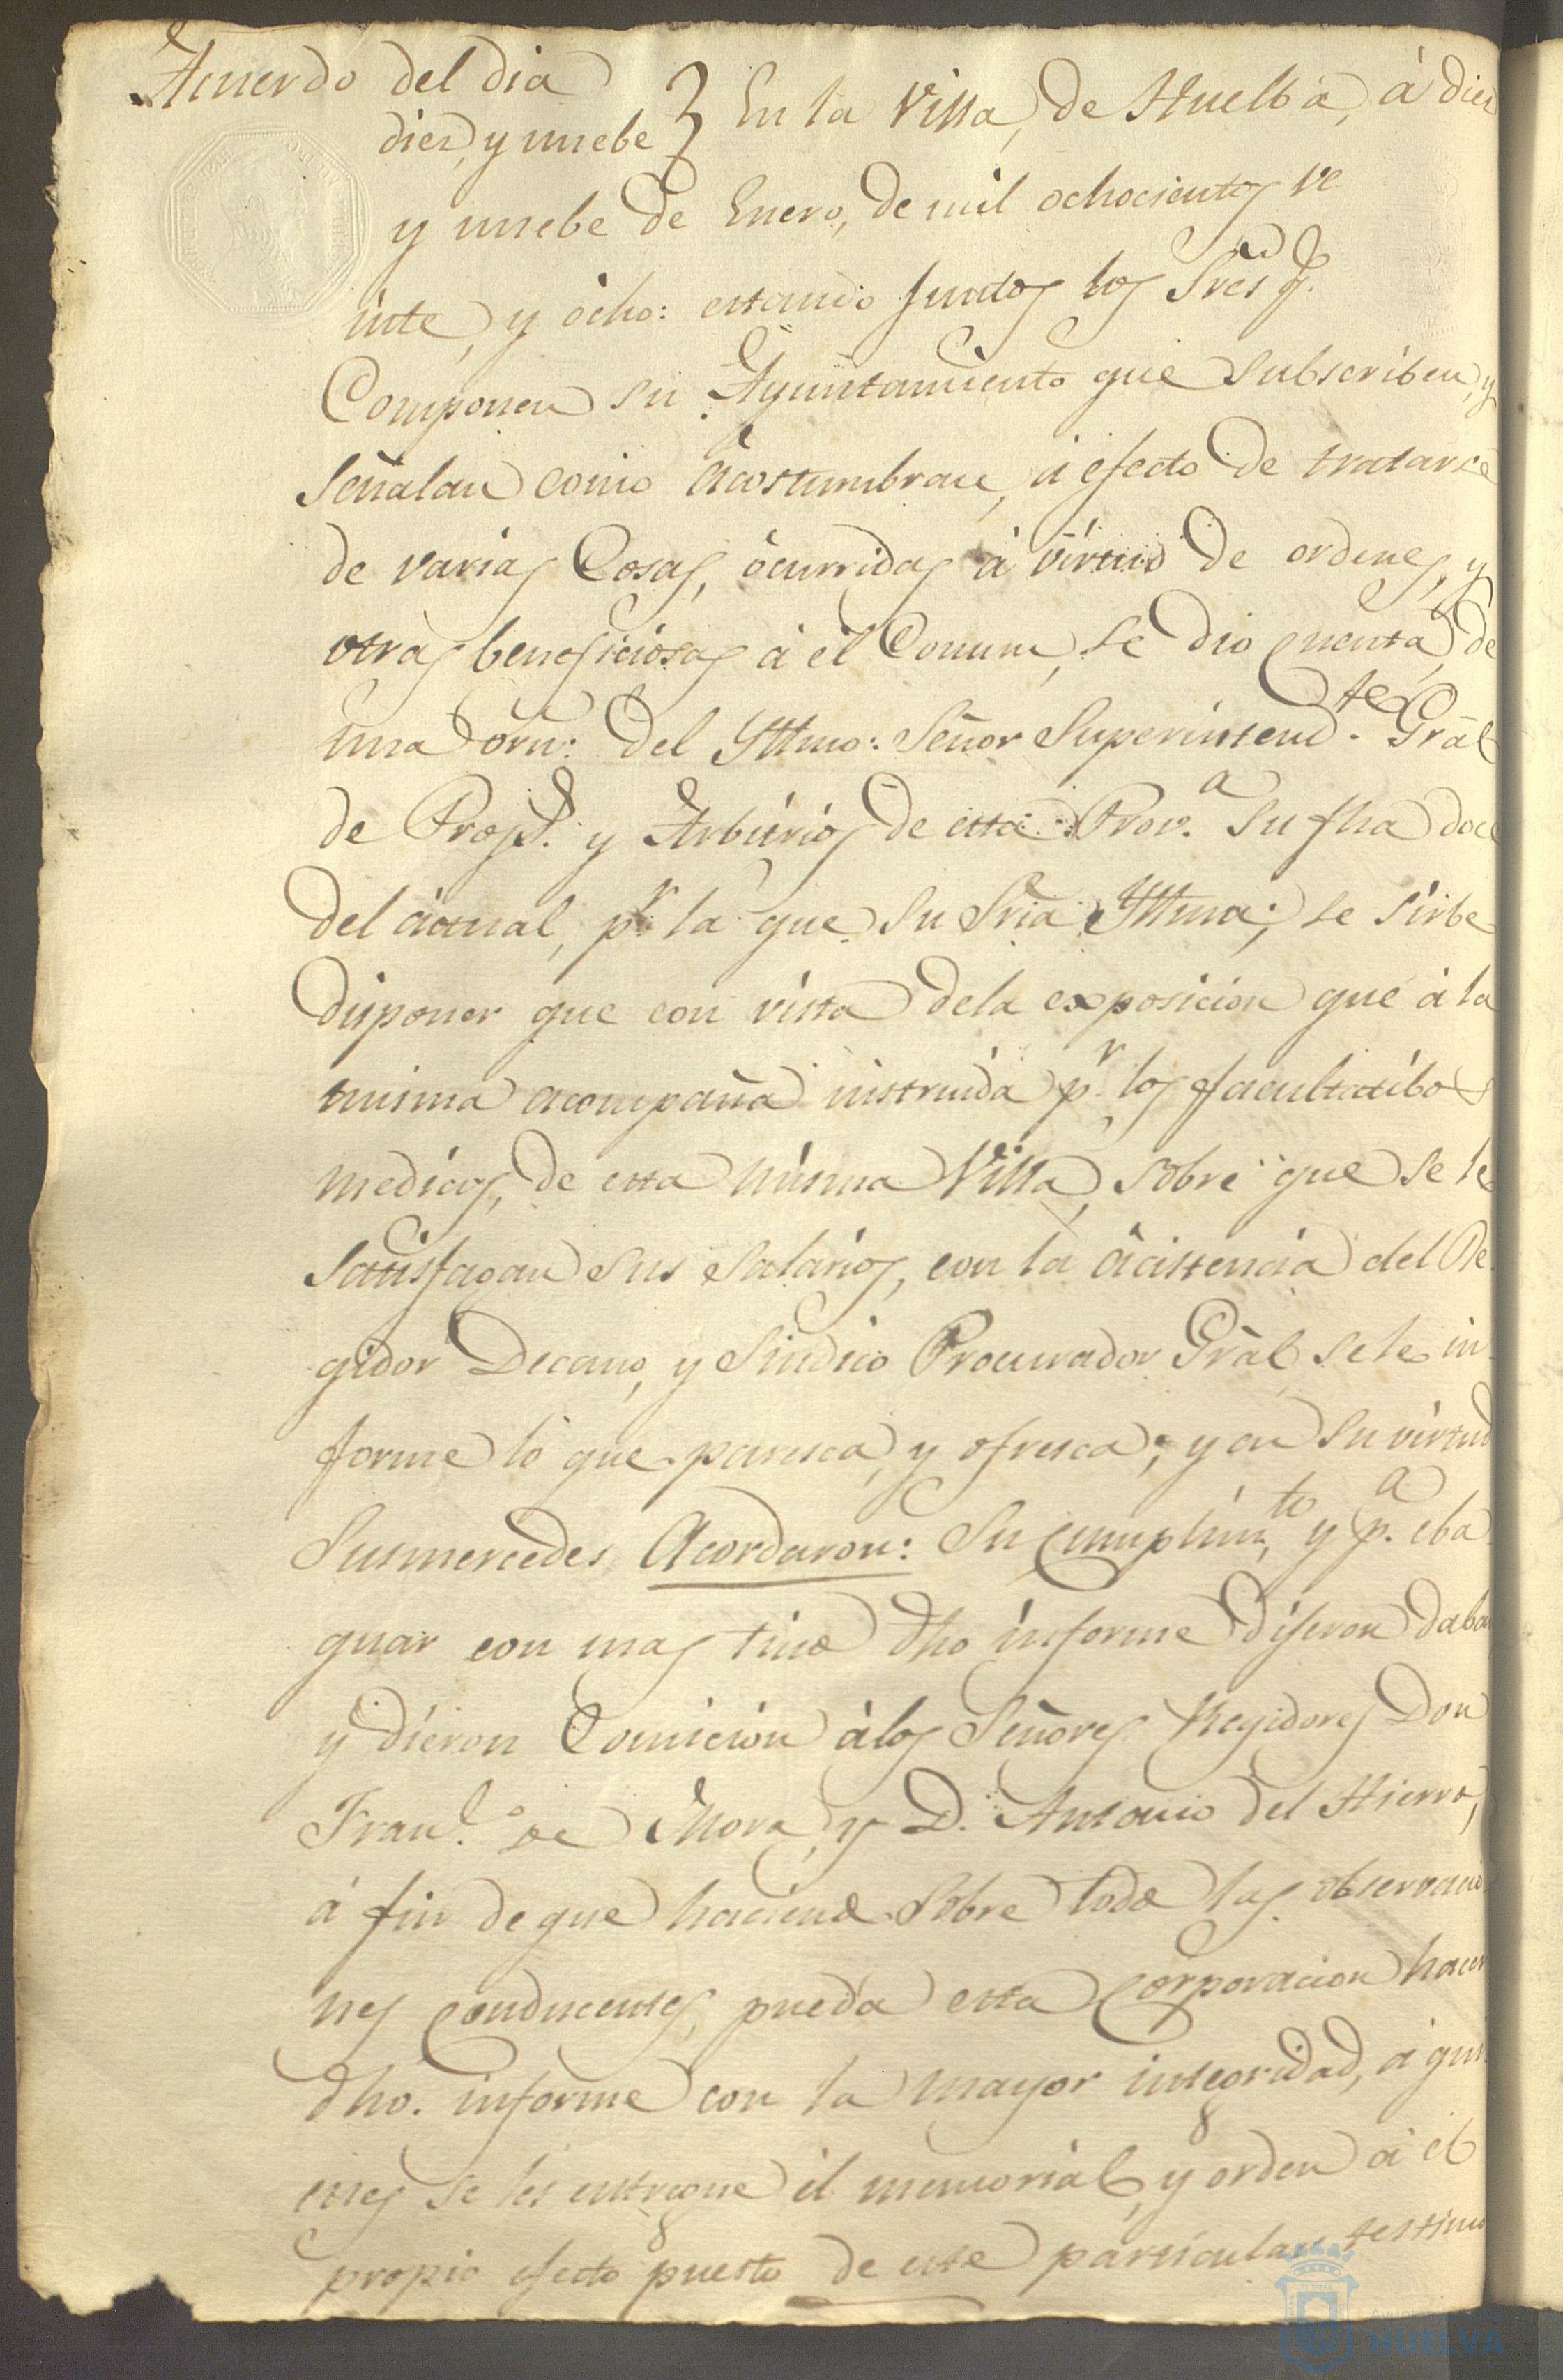 Acuerdo del dia
diez, y nuebe } En la Villa, de Huelba, à diez
y nuebe de Enero, de mil ochocientos ve
inte, y ocho: estando juntos los Sres q.
Componen su Ayuntamiento que subscriben, y
Señalan como acostumbran, á efecto de tratarse
de varias Cosas, ócurridas à virtud de ordenes, y
otras beneficiosas á él Comun, se dio cuenta, de
una orn: del Yltmo: Señor Superintend.te Gral
de Prop.s y Arbitrios de esta Prov.a su fha doce
del actual, p.r la que Su Sria Yltma; se sirbe
disponer que con vista dela exposicion que à la
misma acompaña instruida p.r los facultatibos
medicos, de esta misma Villa, sobre que se le
Satisfagan sus Salarios, con la àcistencia del Re
gidor Decano, y Sindico Procurador Gràl se le in
forme lo que paresca, y ofresca; y en su virtud
Susmercedes Acordaron: Su cumplim.to, y p.a eba
quar con mas tino dho informe dijeron daban
y dieron Comición àlos Señores Regidores Don
Fran.co de Mora, y D. Antonio del Hierro,
á fin de que haciendo sobre todo las observacio
nes conducentes, pueda esta Corporacion hacer
dho. informe con la mayor integridad, á qui
enes se les entregue él memorial, y orden á el
propio efecto puesto de este particular testimo
HUELVA